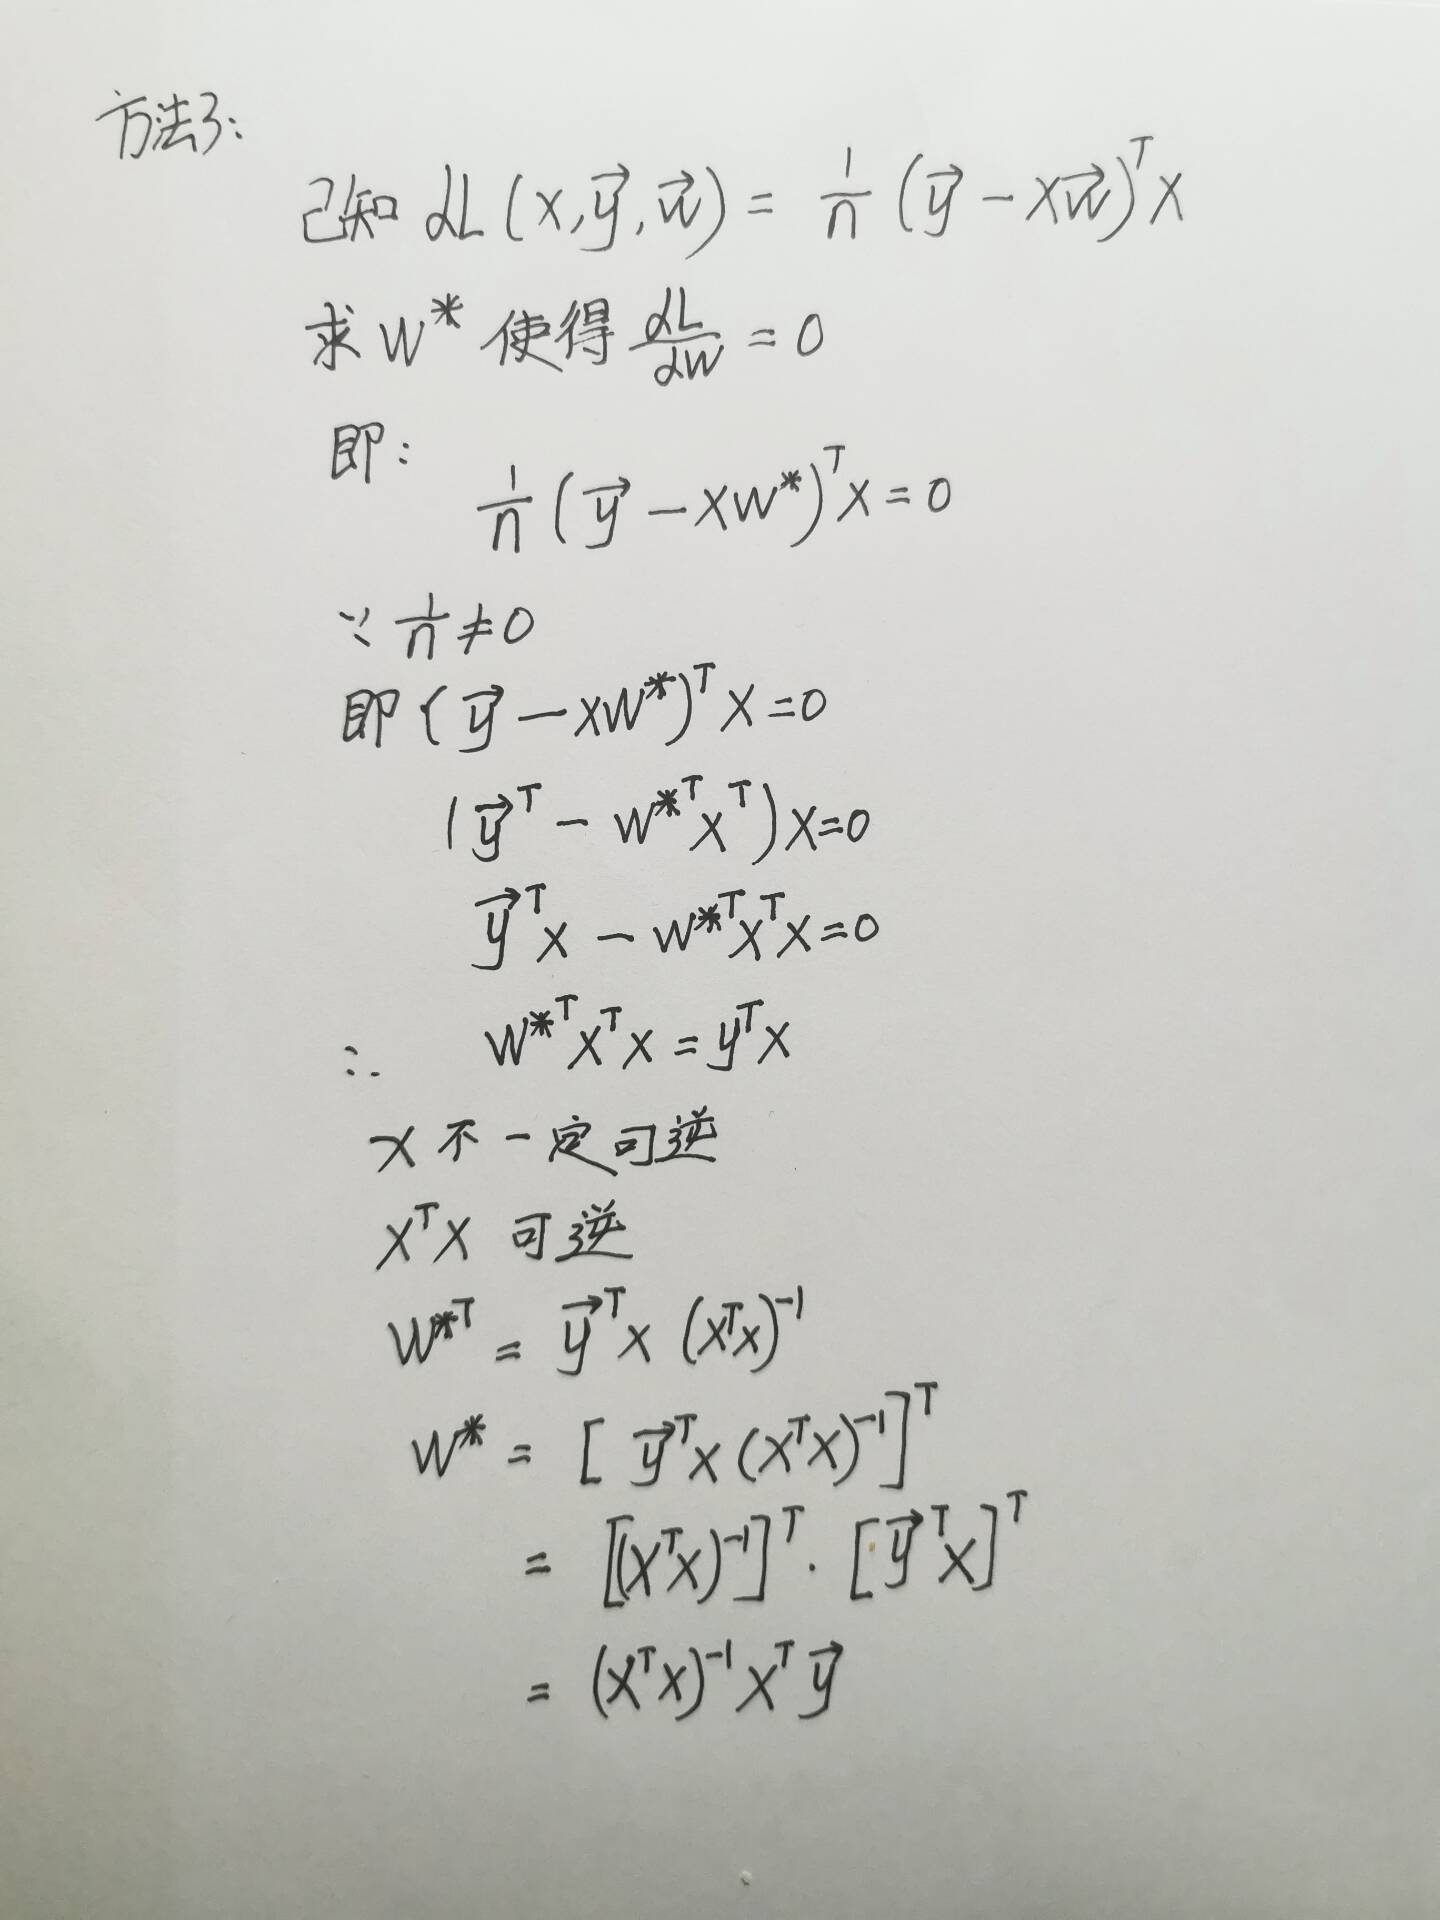 方法3:
已知 ∂L(X,y⃗,w⃗) = 1/n (y⃗ - Xw⃗)ᵀX
求 w* 使得 ∂L/∂w = 0
即:
1/n (y⃗ - Xw*)ᵀX = 0
∵ 1/n ≠ 0
即 (y⃗ - Xw*)ᵀX = 0
(y⃗ᵀ - w*ᵀXᵀ)X = 0
y⃗ᵀX - w*ᵀXᵀX = 0
∴ w*ᵀXᵀX = yᵀX
X 不一定可逆
XᵀX 可逆
w*ᵀ = y⃗ᵀX (XᵀX)⁻¹
w* = [y⃗ᵀX (XᵀX)⁻¹]ᵀ
= [(XᵀX)⁻¹]ᵀ · [y⃗ᵀX]ᵀ
= (XᵀX)⁻¹Xᵀy⃗